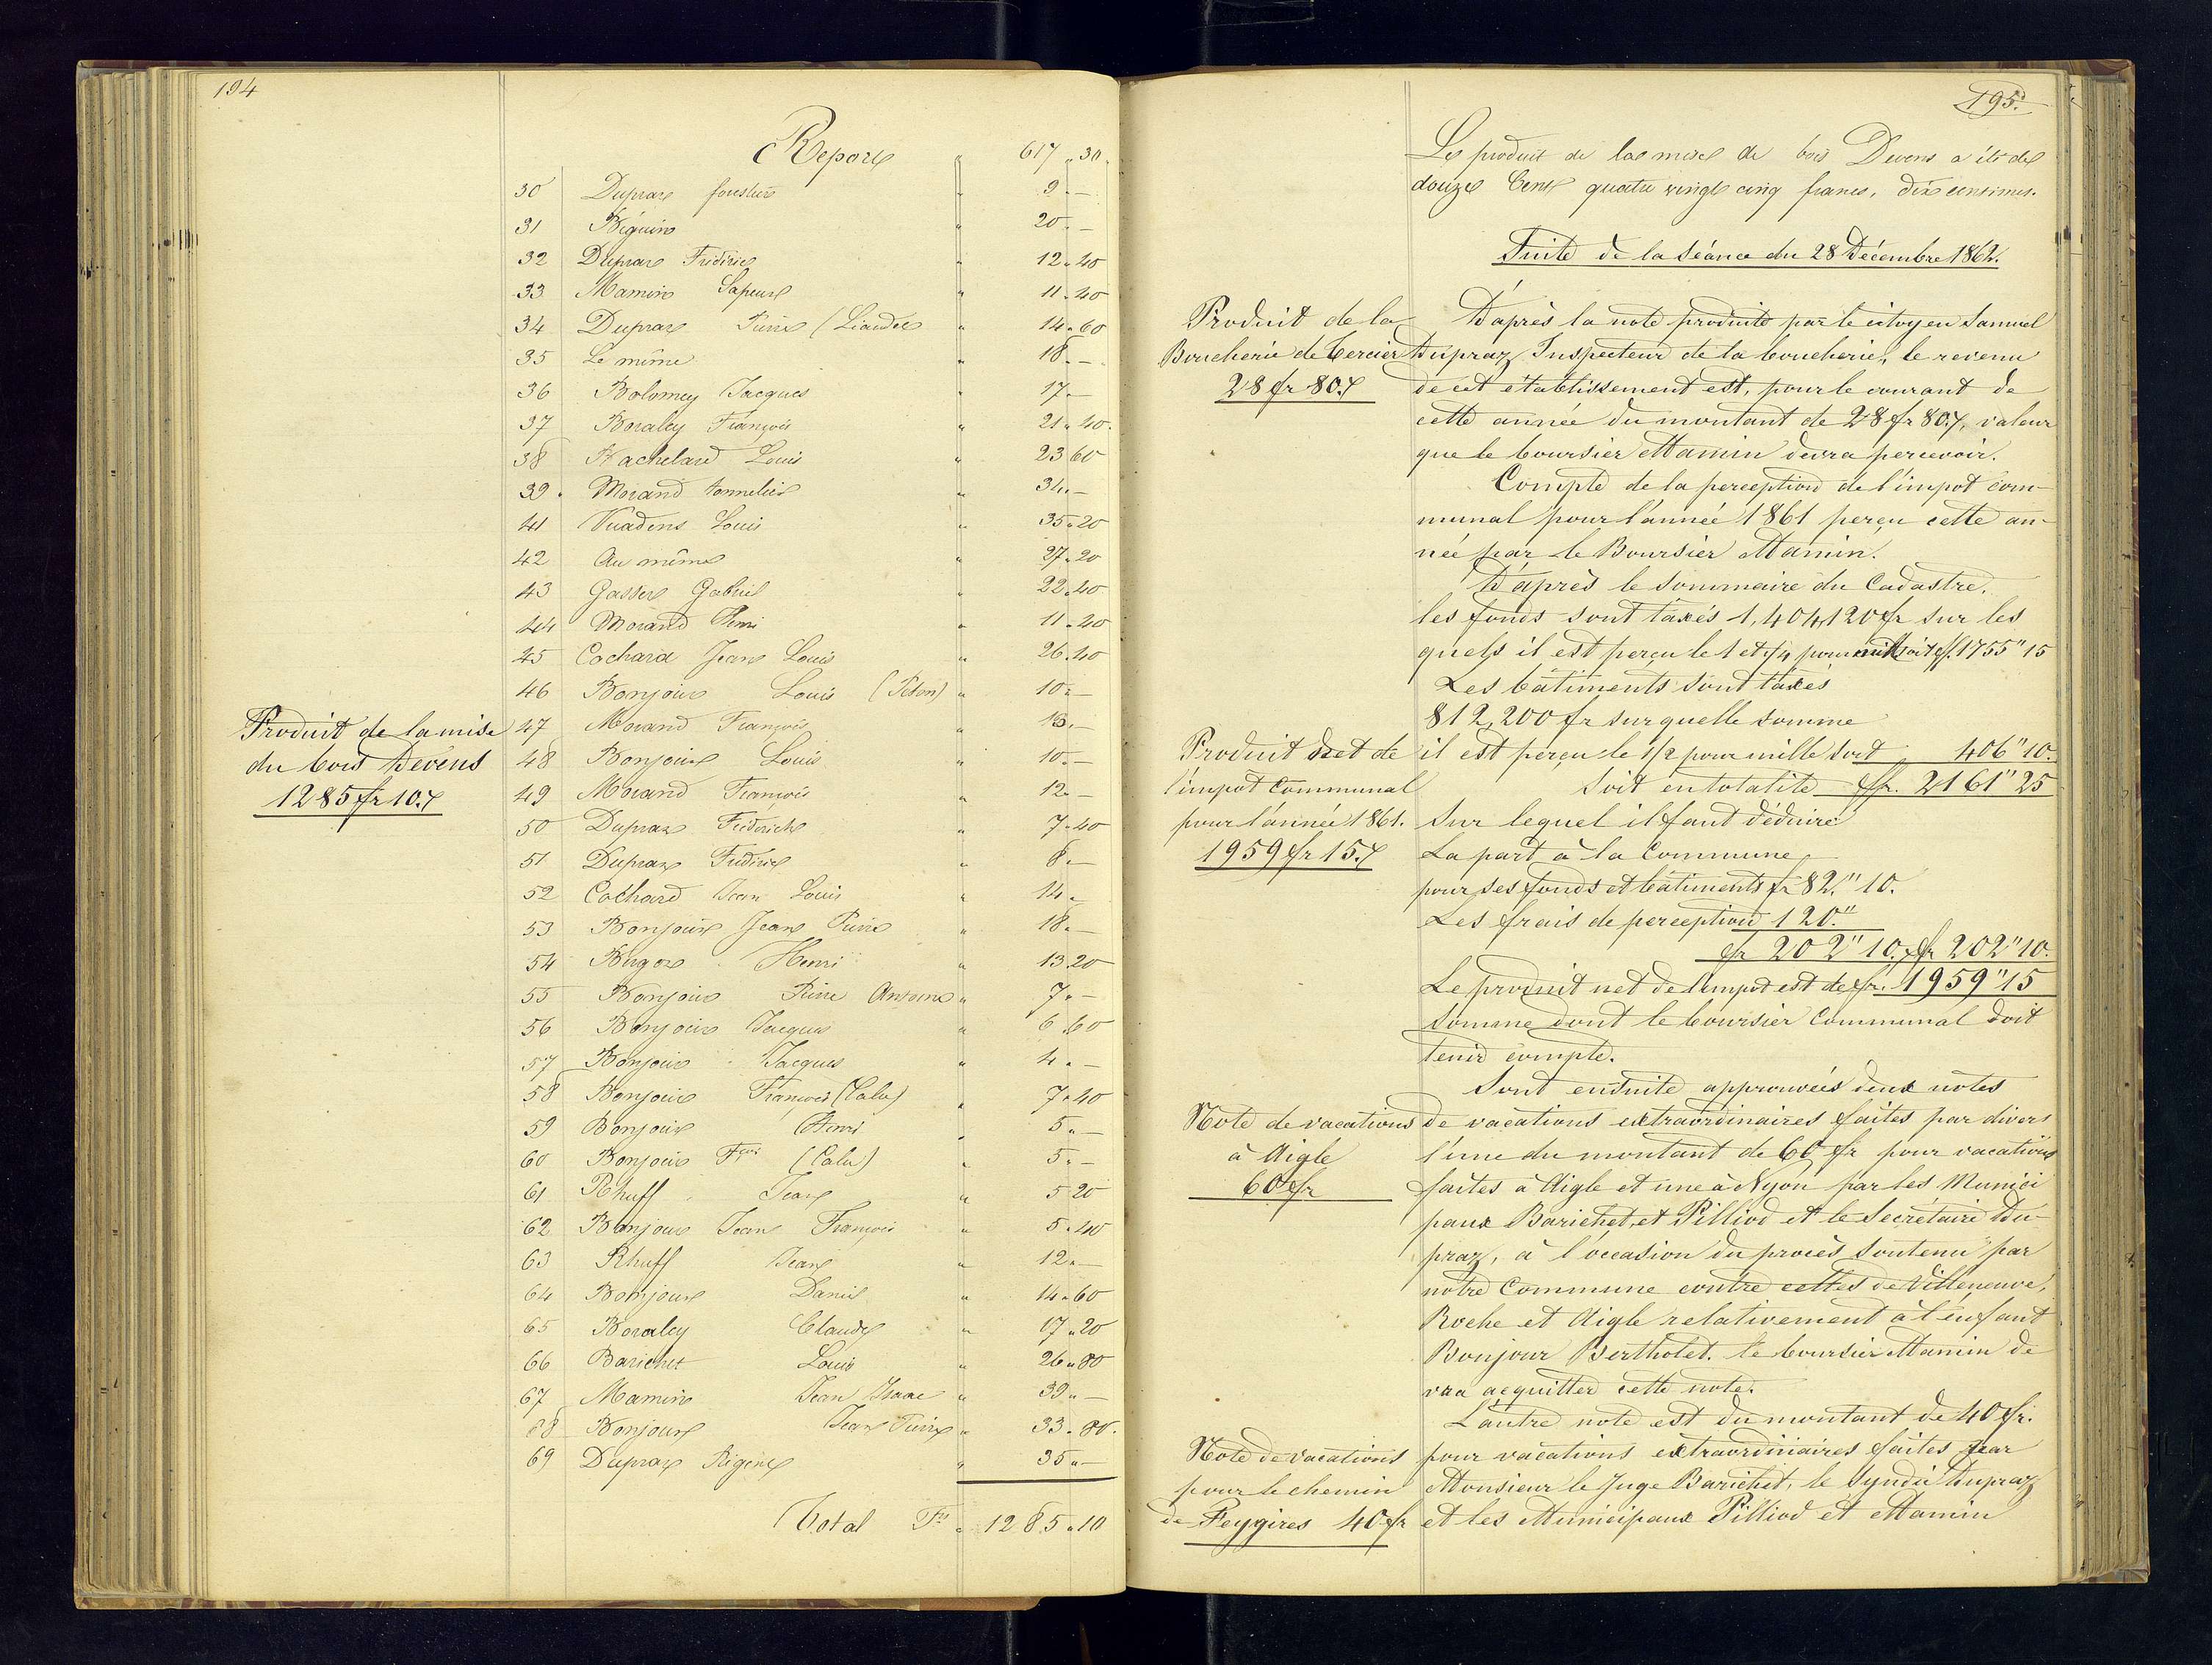 194
Report " 617 " 30
30 Dupraz forestier " 9 " —
31 Béguin " 20 " —
32 Dupraz Fridéric " 12 " 40
33 Mamin Sapeur " 11 " 40
34 Dupraz Pierre (Liaudee " 14 " 60
35 Le même " 18 " —
36 Bolomey Jacques " 17 " —
37 Boraley François " 21 " 40
38 Bachelard Louis " 23 60
39 Morand tonnelier " 34 " —
41 Vuadens Louis " 35 " 20
42 Au même " 27 " 20
43 Gasser Gabriel " 22 " 40
44 Morand Henri " 11 " 20
45 Cochard Jean Louis " 26 " 40
46 Bonjour Louis (Piton) " 10 " —
Produit de la mise
du bois Devens
1285 fr 10 c
47 Morand François " 13 " —
48 Bonjour Louis " 10 " —
49 Morand François " 12 " —
50 Dupraz Fréderich " 7 " 40
51 Dupraz Fridéric " 8 " —
52 Cochard Jean Louis " 14 "
53 Bonjour Jean Pierre " 18 " —
54 Henri " 13 20
55 Bonjour Pierre Antoine " 7 " —
56 Bonjour Jacques " 6 " 60
57 Bonjour Jacques " 4 " —
58 Bonjour François (Calu) " 7 " 40
59 Bonjour Henri " 5 " —
60 Bonjour Fçois (Calu) " 5 " —
61 Rhuff Jean " 5 20
62 Bonjour Jean François " 5 " 40
63 Rhuff Jean " 12 " —
64 Bonjour Daniel " 14 " 60
65 Boraley Claude " 17 " 20
66 Barichet Louis " 26 " 80
67 Mamin Jean Isaac " 39 " —
68 Bonjour Jean Pierre " 33 " 80
69 Dupraz Régent " 35 " —
Total Frs " 1285 " 10
195
Le produit de la mise de bois Devens a été de
douze Cent quatre vingt cinq francs, dix centimes.
Suite de la Séance du 28 Décembre 1862.
Produit de la
Boucherie de Tercier
28 fr 80 c
D'après la note produite par le citoyen Samuel
Dupraz, Inspecteur de la boucherie, le revenu
de cet établissement est, pour le courant de
cette année du montant de 28 fr 80 c, valeur
que le boursier Mamin devra percevoir.
Compte de la perception de l'impot com-
munal pour l'année 1861 perçu cette an-
née par le Boursier Mamin.
D'après le sommaire du Cadastre,
les fonds sont taxés 1,404,120 fr sur les
quels il est perçu le 1 et 1/4 pour mille soit fr. 1755 " 15
Les bâtiments sont taxés
812,200 fr sur quelle somme
Produit net de
l'impot Communal
pour l'année 1861.
1959 fr 15 c
il est perçu le 1/2 pour mille soit 406 " 10.
Soit en totalité fr. 2161 " 25
Sur lequel il faut déduire
La part à la Commune
pour ses fonds et bâtiments fr 82 " 10.
Les frais de perception 120 "
fr 202 " 10. fr 202 " 10.
Le produit net de l'impot est de fr. 1959 " 15
Somme dont le boursier Communal doit
tenir compte.
Sont ensuite approuvées deux notes
Note de vacations
à Aigle
60 fr
de vacations extraordinaires faites par divers
l'une du montant de 60 fr pour vacations
faites à Aigle et une à Nyon par les Munici
paux Barichet, et Pilliod et le Secrétaire Du-
praz, à l'occasion du procès soutenu par
notre Commune contre celles de Villeneuve,
Roche et Aigle relativement à l'enfant
Bonjour Bertholet. le boursier Mamin de
vra acquitter cette note.
L'autre note est du montant de 40 fr.
Note de vacations
pour le chemin
de Feygires 40 fr
pour vacations extraordinaires faites par
Monsieur le Juge Barichet, le Syndic Dupraz
et les Municipaux Pilliod et Mamin